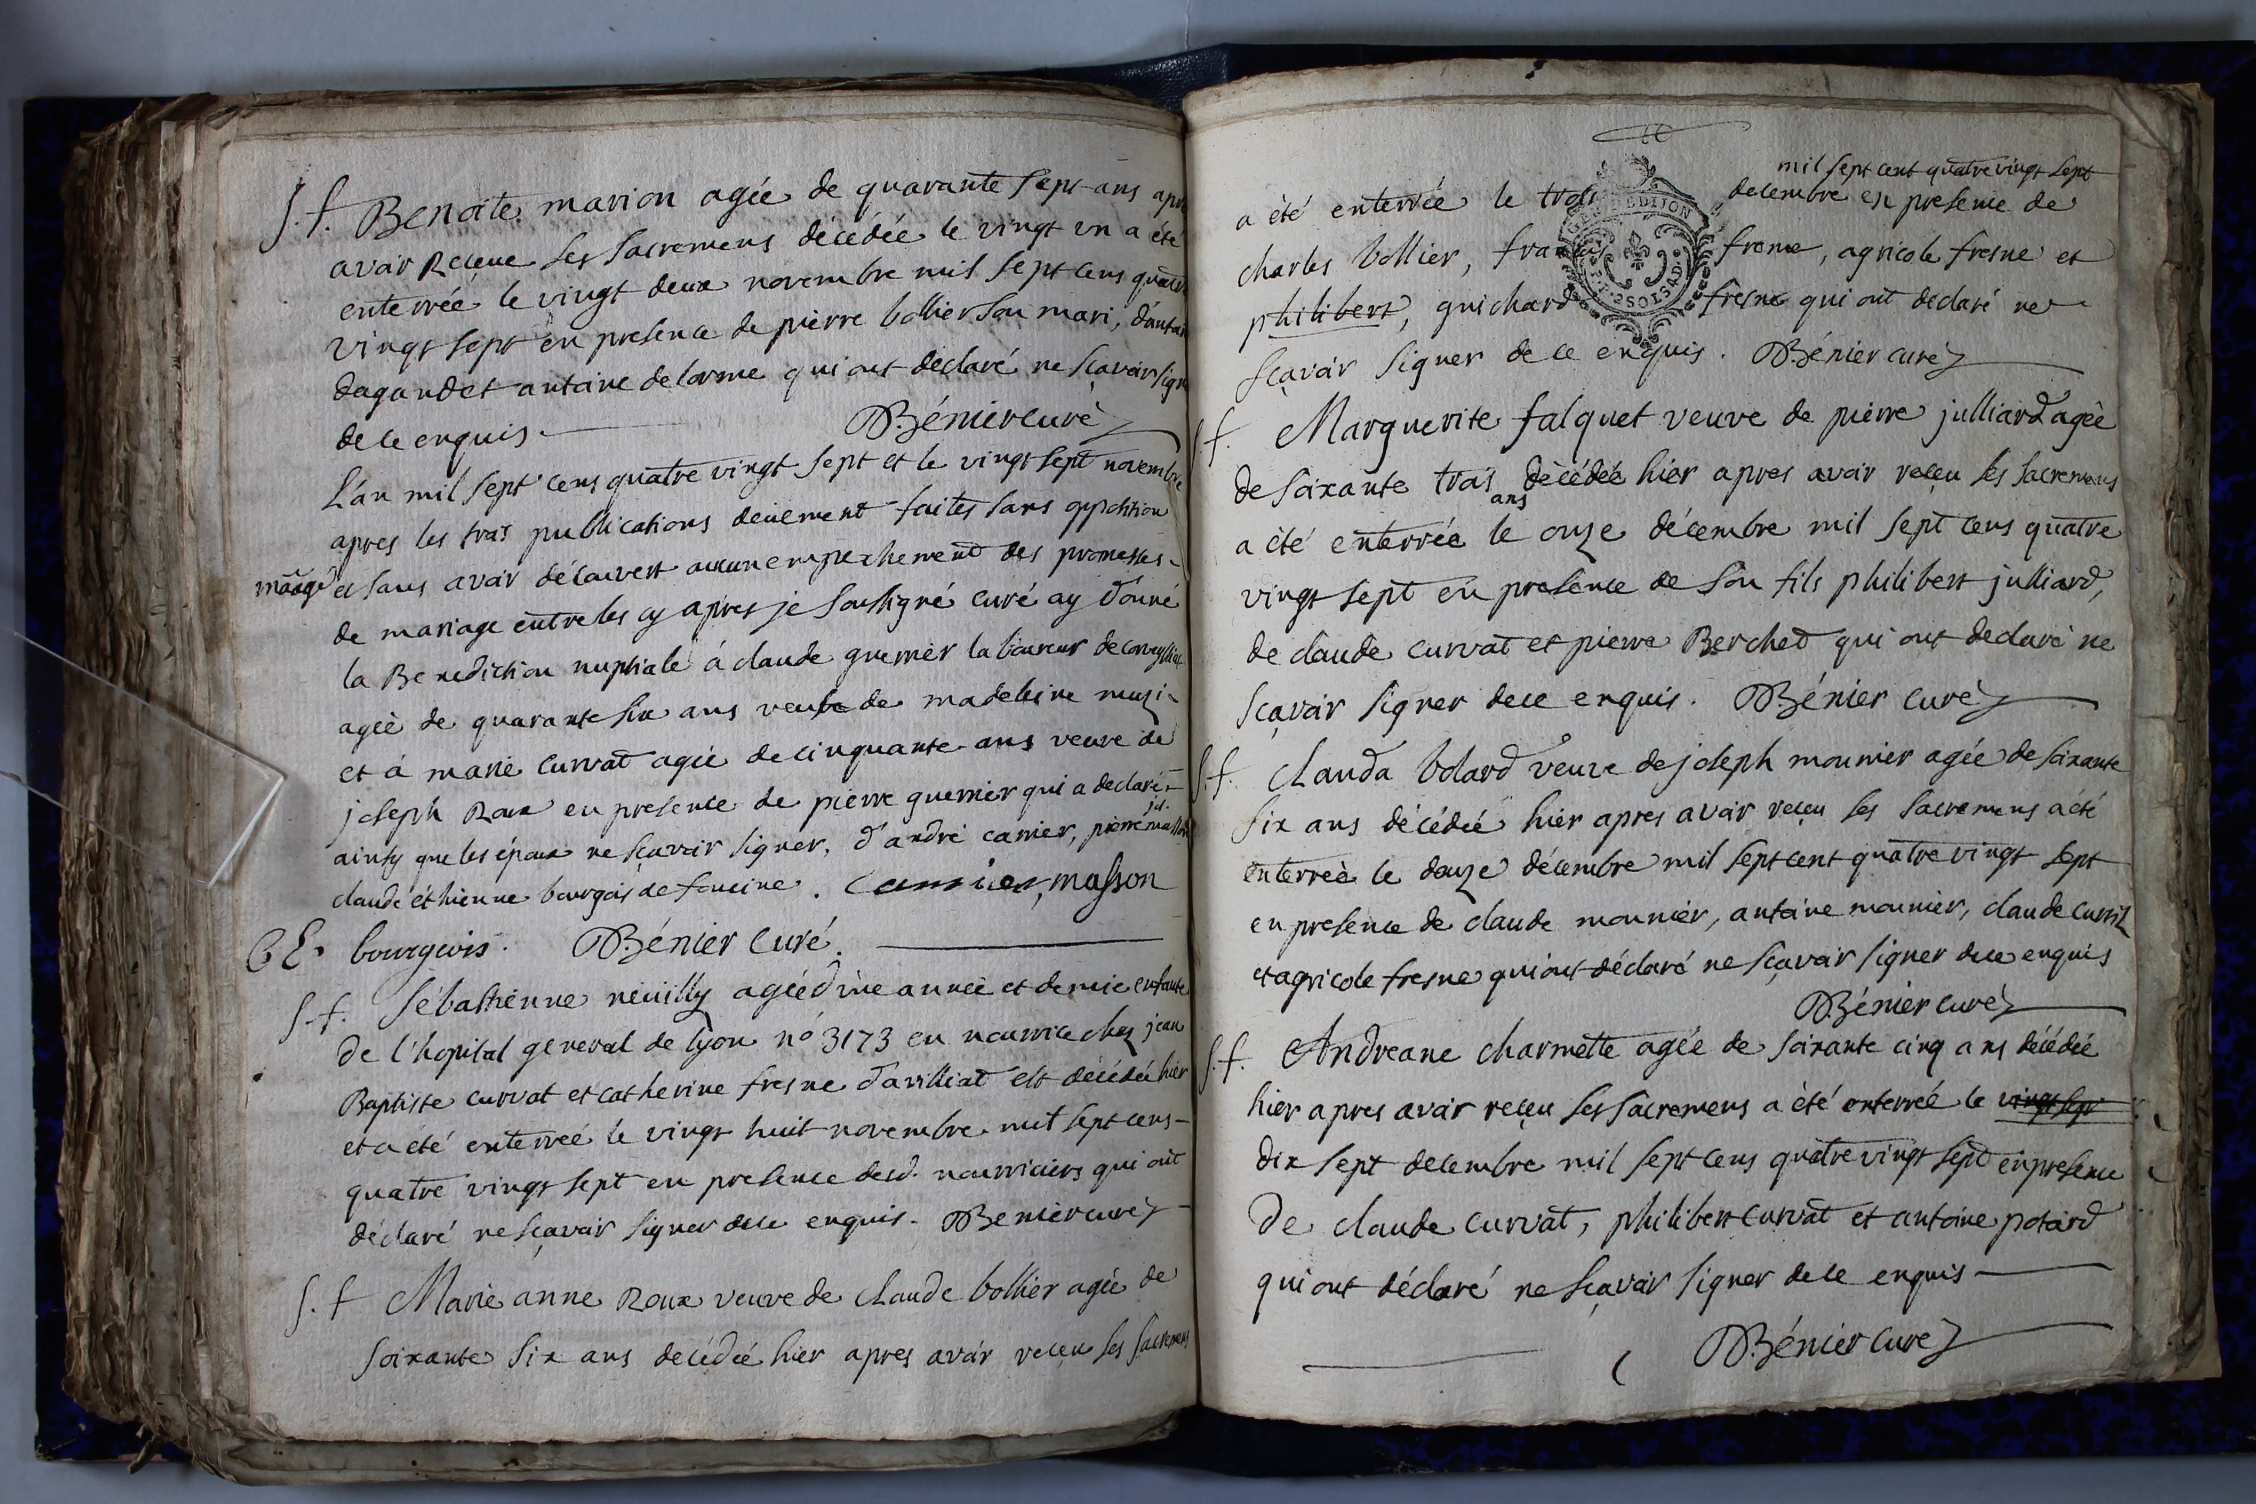 S.f. Benoite marion agée de quarante sept ans apres
avoir Receue ses sacremens décédée le vingt un a été
enterrée le vingt deux novembre mil sept cens quatre
vingt sept en presence de pierre bollier son mari, d'antoine
dagand et antoine delorme qui ont déclaré ne scavoir signer
de ce enquis. Bénier curé
L'an mil sept cens quatre vingt sept et le vingt sept novembre
apres les trois publications deüement faites sans opposition
maãge et sans avoir découvert aucun empechement des promesses
de mariage entre les cy apres je soussigné curé ay donné
la Benediction nuptiale à claude guerrier laboureur de
agée de quarante six ans veufve de madeleine muzi
et à marie curvat agée de cinquante ans veuve de
joseph Roux en presence de pierre guerrier qui a declaré
ainsy que les époux ne scavoir signer, d'andré carrier, pierre jh. masson
claude éthienne bourgois de foncine. Carrier, masson
C E. bourgeois. Bénier Curé.
S.f. Sébastienne neüilly agée d'une année et demie enfante
de l'hopital general de lyon n° 3173 en nourrice chez jean
Baptiste curvat et catherine fresne d'avilliat est décédée hier
et a été enterreé le vingt huit novembre mil sept cens
quatre vingt sept en presence desd. nourriciers qui ont
déclaré ne sçavoir signer de ce enquis. Benier curé
S.f Marie anne Roux veuve de claude bollier agée de
soixante six ans décédée hier apres avoir reçeu ses sacremens
mil sept cent quatre vingt sept
a été enterrée le trois decembre en presence de
charles bollier, francois frene, agricole fresne et
philibert, guichard fresne qui ont declaré ne
sçavoir signer de ce enquis. Bénier curé
GEN. DE DIJON
2 SOLS 4 D.
f. Marguerite falquet veuve de pierre julliard agée
de soixante trois ans décédée hier apres avoir reçeu ses sacremens
a été enterrée le onze décembre mil sept cens quatre
vingt sept en presence de son fils philibert julliard,
de claude curvat et pierre Berchet qui ont declaré ne
sçavoir signer de ce enquis. Bénier curé
S.f. Clauda bolard veuve de joseph mounier agée de soixante
six ans décédée hier apres avoir reçeu ses sacremens a été
enterrée le douze décembre mil sept cent quatre vingt sept
en presence de claude mounier, antoine mounier, claude
et agricole fresne qui ont déclaré ne sçavoir signer de ce enquis
Bénier curé
S.f. Andreane charmette agée de soixante cinq ans décédée
hier apres avoir reçeu ses sacremens a été enterreé le vingt sept
dix sept decembre mil sept cens quatre vingt sept en presence
de claude curvat, philibert curvat et antoine potard
qui ont déclaré ne sçavoir signer de ce enquis
Bénier curé